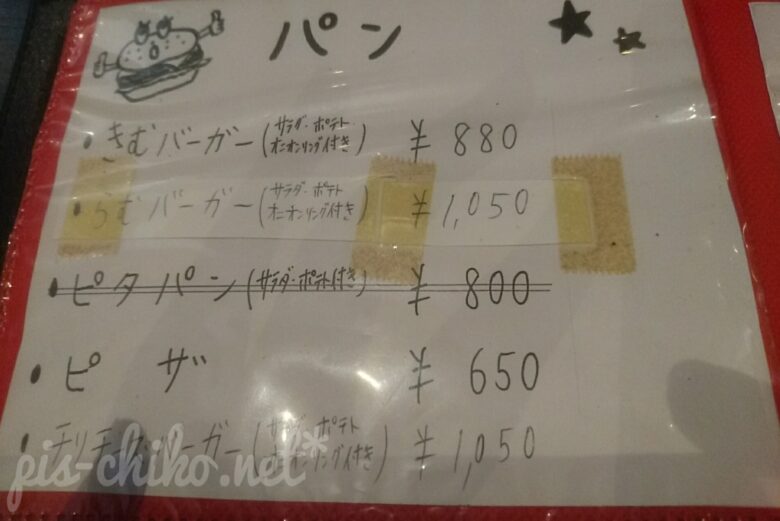 パン
・きむバーガー(サラダ・ポテト オニオンリング付き) ¥880
・らむバーガー(サラダ・ポテト オニオンリング付き) ¥1,050
・ピタパン(サラダ・ポテト付き) ¥800
・ピザ ¥650
・チリチーズバーガー(サラダ・ポテト オニオンリング付き) ¥1,050
pis-chiko.net*